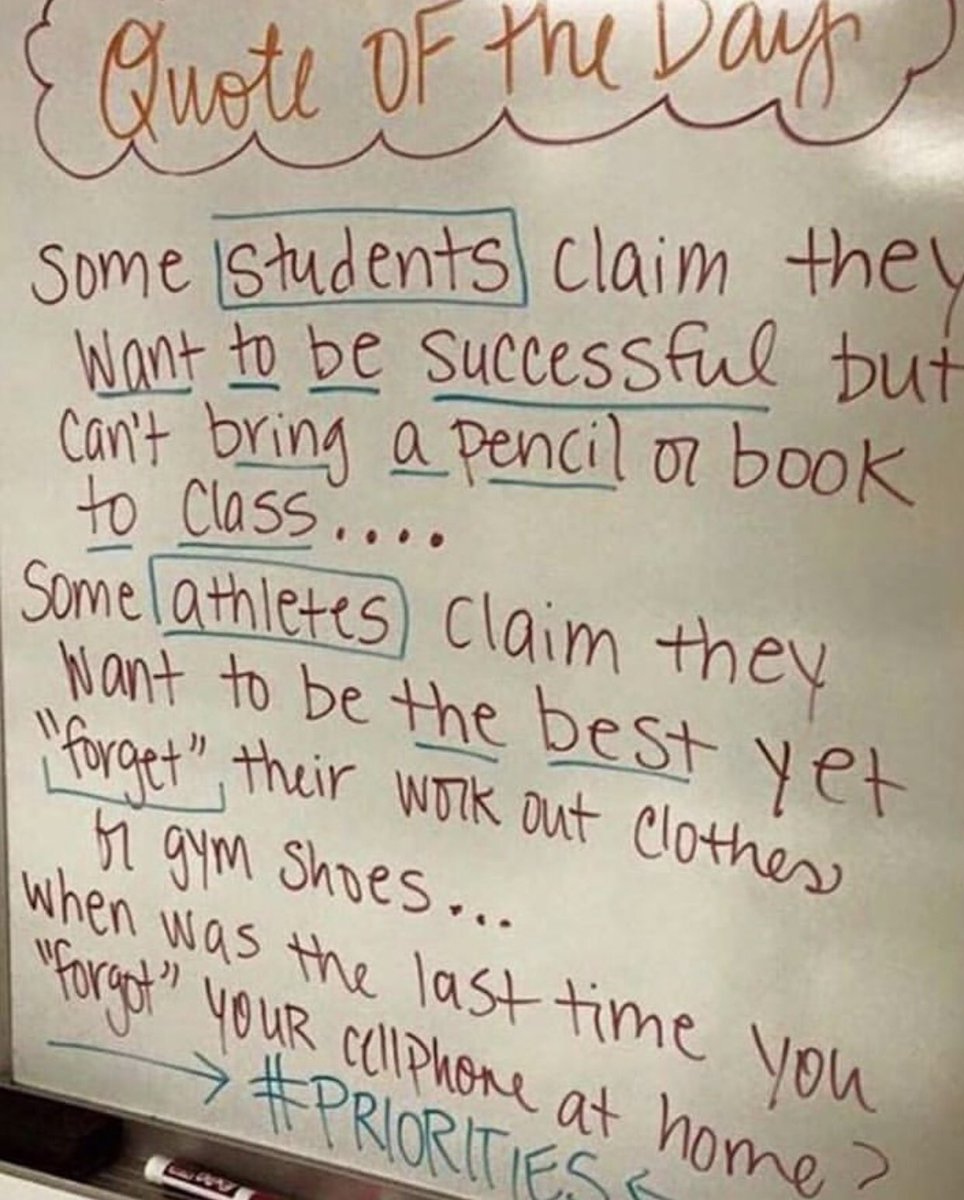 Quote OF the Day
Some students claim they
Want to be successful but
can't bring a pencil or book
to class....
Some athletes claim they
Want to be the best yet
"forget" their work out clothes
or gym shoes...
when was the last time you
"forgot" YOUR cellphone at home?
#PRIORITIES